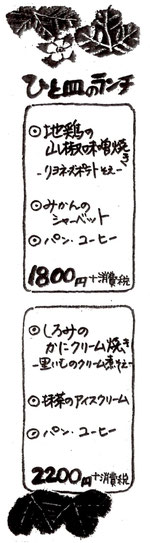 ひと皿のランチ
◎地鶏の
山椒味噌焼き
-リヨネズポテト添え-
◎みかんの
シャーベット
◎パン・コーヒー
1800円+消費税
◎しろみの
かにクリーム焼き
-里いものクリーム煮添え-
◎抹茶のアイスクリーム
◎パン・コーヒー
2200円+消費税